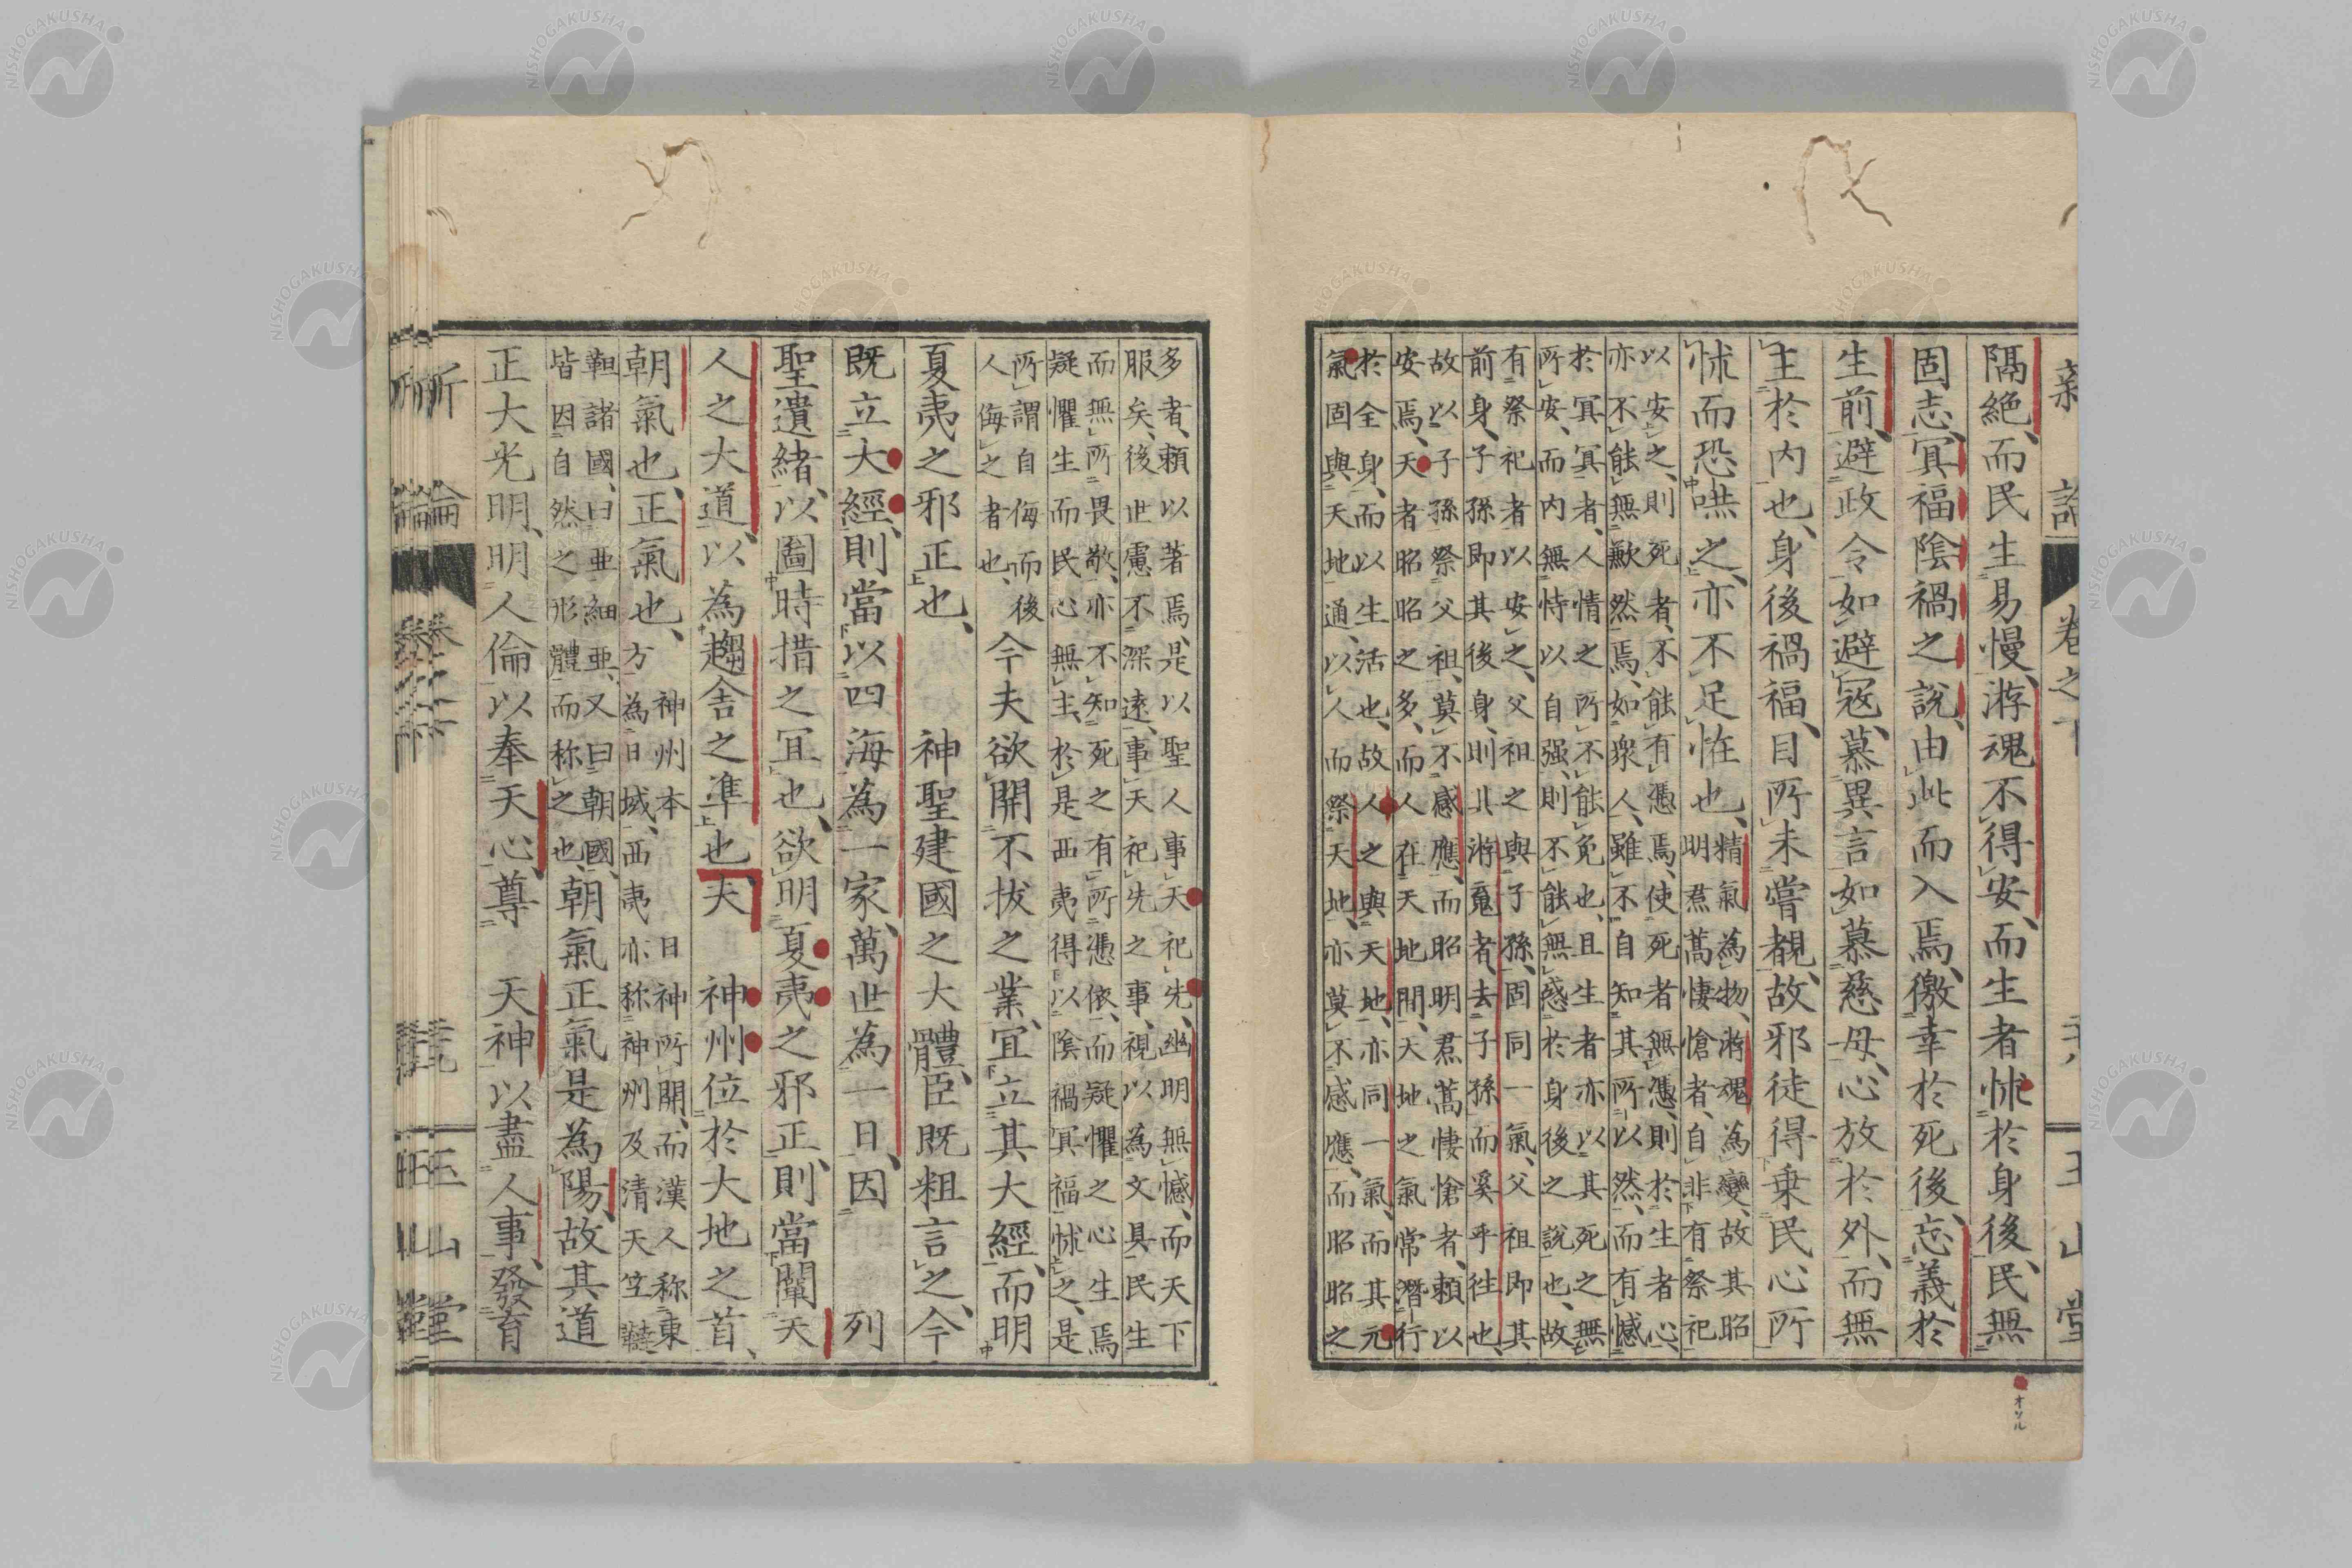 新論 卷之下 玉山堂
隔絶、而民生易慢、游魂不得安、而生者怵於身後、民無
固志、冥福陰禍之說、由此而入焉、徼幸於死後、忘義於
生前、避政令如避寇、慕異言如慕慈母、心放於外、而無
主於內也、身後禍福、目所未嘗覩、故邪徒得乗民心所
怵而恐嚇之、亦不足怪也、
精氣為物、游魂為變、故其昭
明焄蒿悽愴者、自非有祭祀
以安之、則死者不能有憑焉、使死者無憑、則於生者心、
亦不能無歉然焉、如衆人、雖不自知其所以然、而有憾
於冥冥者、人情之所不能免也、且生者亦以其死之無
所安、而內無恃以自强、則不能無惑於身後之說也、故
有祭祀者以安之、父祖之與子孫、固同一氣、父祖即其
前身、子孫即其後身、則其游䰟者、去子孫而奚乎徃也、
故以子孫祭父祖、莫不感應、而昭明焄蒿悽愴者、頼以
安焉、天者昭昭之多、而人在天地間、天地之氣常潛行
於全身、而以生活也、故人之與天地、亦同一氣、而其元
氣固與天地通、以人而祭天地、亦莫不感應、而昭昭之
多者、頼以著焉、是以聖人事天祀先、幽明無憾、而天下
服矣、後世慮不深遠、事天祀先之事、視以為文具、民生
而無所畏敬、亦不知死之有所憑依、而疑懼之心生焉
疑懼生而民心無主、於是西夷得以陰禍冥福怵之、是
所謂自侮而後
人侮之者也、
今夫欲開不拔之業、宜立其大經、而明
夏夷之邪正也、 神聖建國之大體、臣既粗言之、今
既立大經、則當以四海為一家、萬世為一日、因 列
聖遺緒、以圖時措之冝也、欲明夏夷之邪正、則當闡天
人之大道、以為趨舍之準也、夫 神州位於大地之首、
朝氣也、正氣也、
神州本 日神所開、而漢人称東
方為日域、西夷亦称神州及清天竺韃
靼諸國、曰亜細亜、又曰朝國、
皆因自然之形體而称之也、
朝氣正氣是為陽、故其道
正大光明、明人倫以奉天心、尊 天神以盡人事、發育
オソル